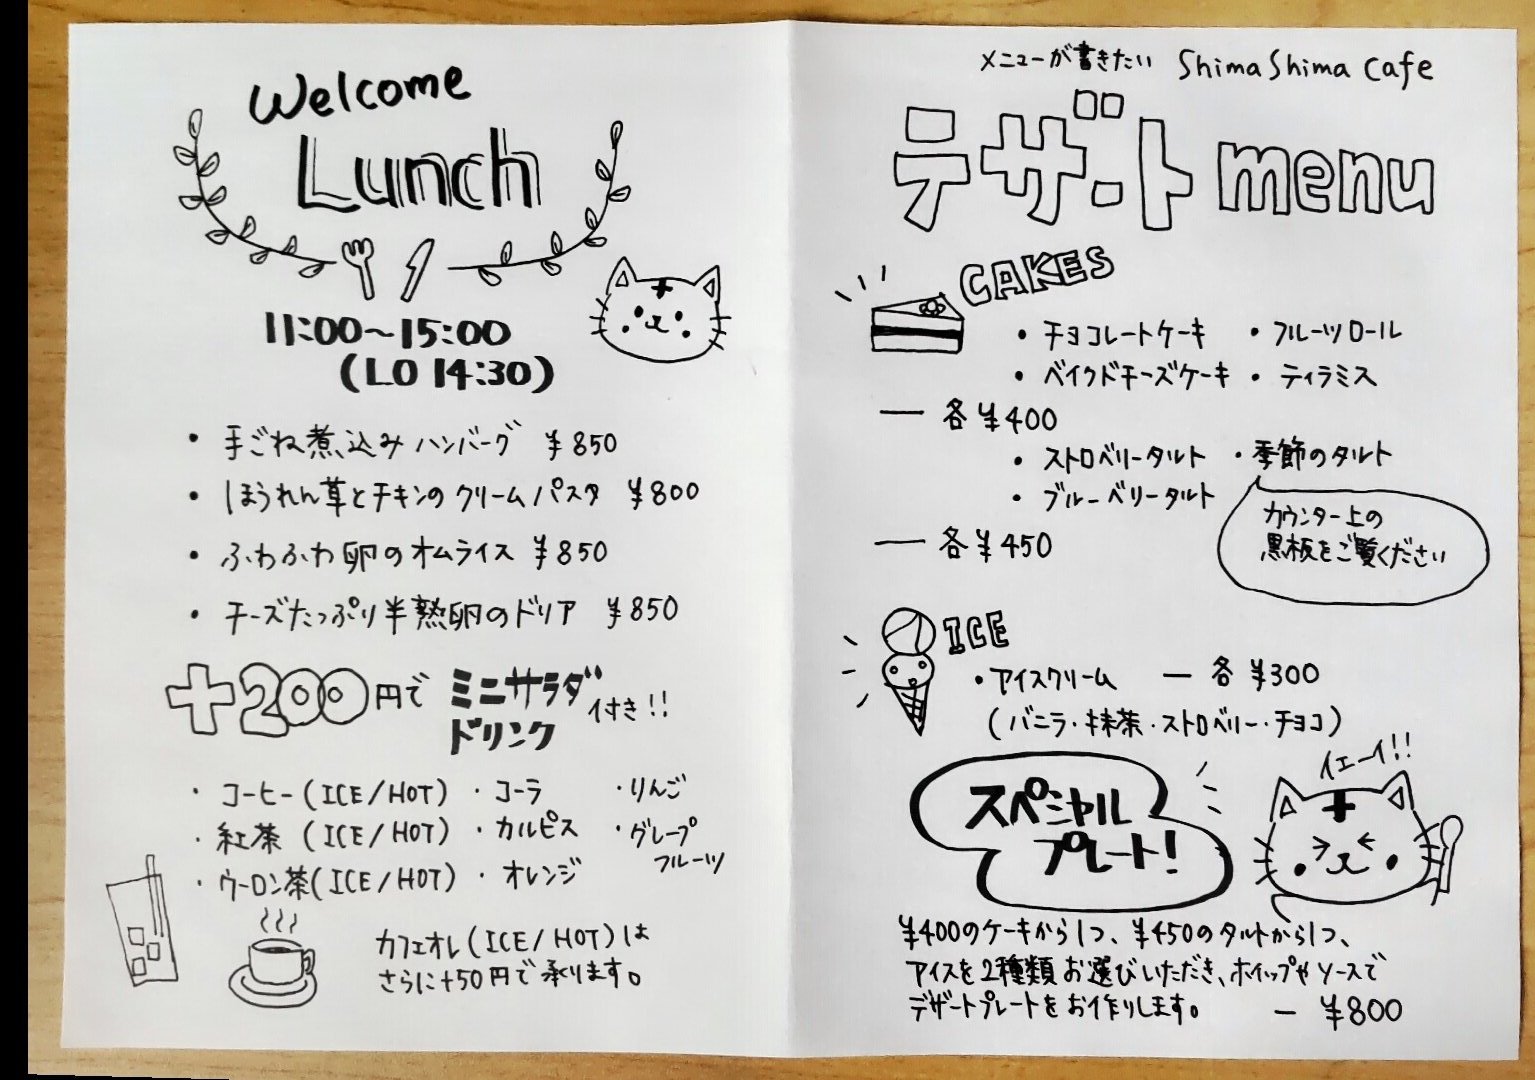 Welcome
Lunch
11:00～15:00
(LO 14:30)
・手ごね煮込みハンバーグ ¥850
・ほうれん草とチキンのクリームパスタ ¥800
・ふわふわ卵のオムライス ¥850
・チーズたっぷり半熟卵のドリア ¥850
+200円で ミニサラダ
ドリンク 付き!!
・コーヒー(ICE/HOT) ・コーラ ・りんご
・紅茶 (ICE/HOT) ・カルピス ・グレープ
フルーツ
・ウーロン茶(ICE/HOT) ・オレンジ
カフェオレ(ICE/HOT)は
さらに+50円で承ります。
メニューが書きたい Shima Shima Cafe
デザート menu
CAKES
・チョコレートケーキ ・フルーツロール
・ベイクドチーズケーキ ・ティラミス
— 各¥400
・ストロベリータルト ・季節のタルト
・ブルーベリータルト
カウンター上の
黒板をご覧ください
— 各¥450
ICE
・アイスクリーム — 各¥300
(バニラ・抹茶・ストロベリー・チョコ)
イエーイ!!
スペシャル
プレート!
¥400のケーキから1つ、¥450のタルトから1つ、
アイスを2種類お選びいただき、ホイップやソースで
デザートプレートをお作りします。 — ¥800